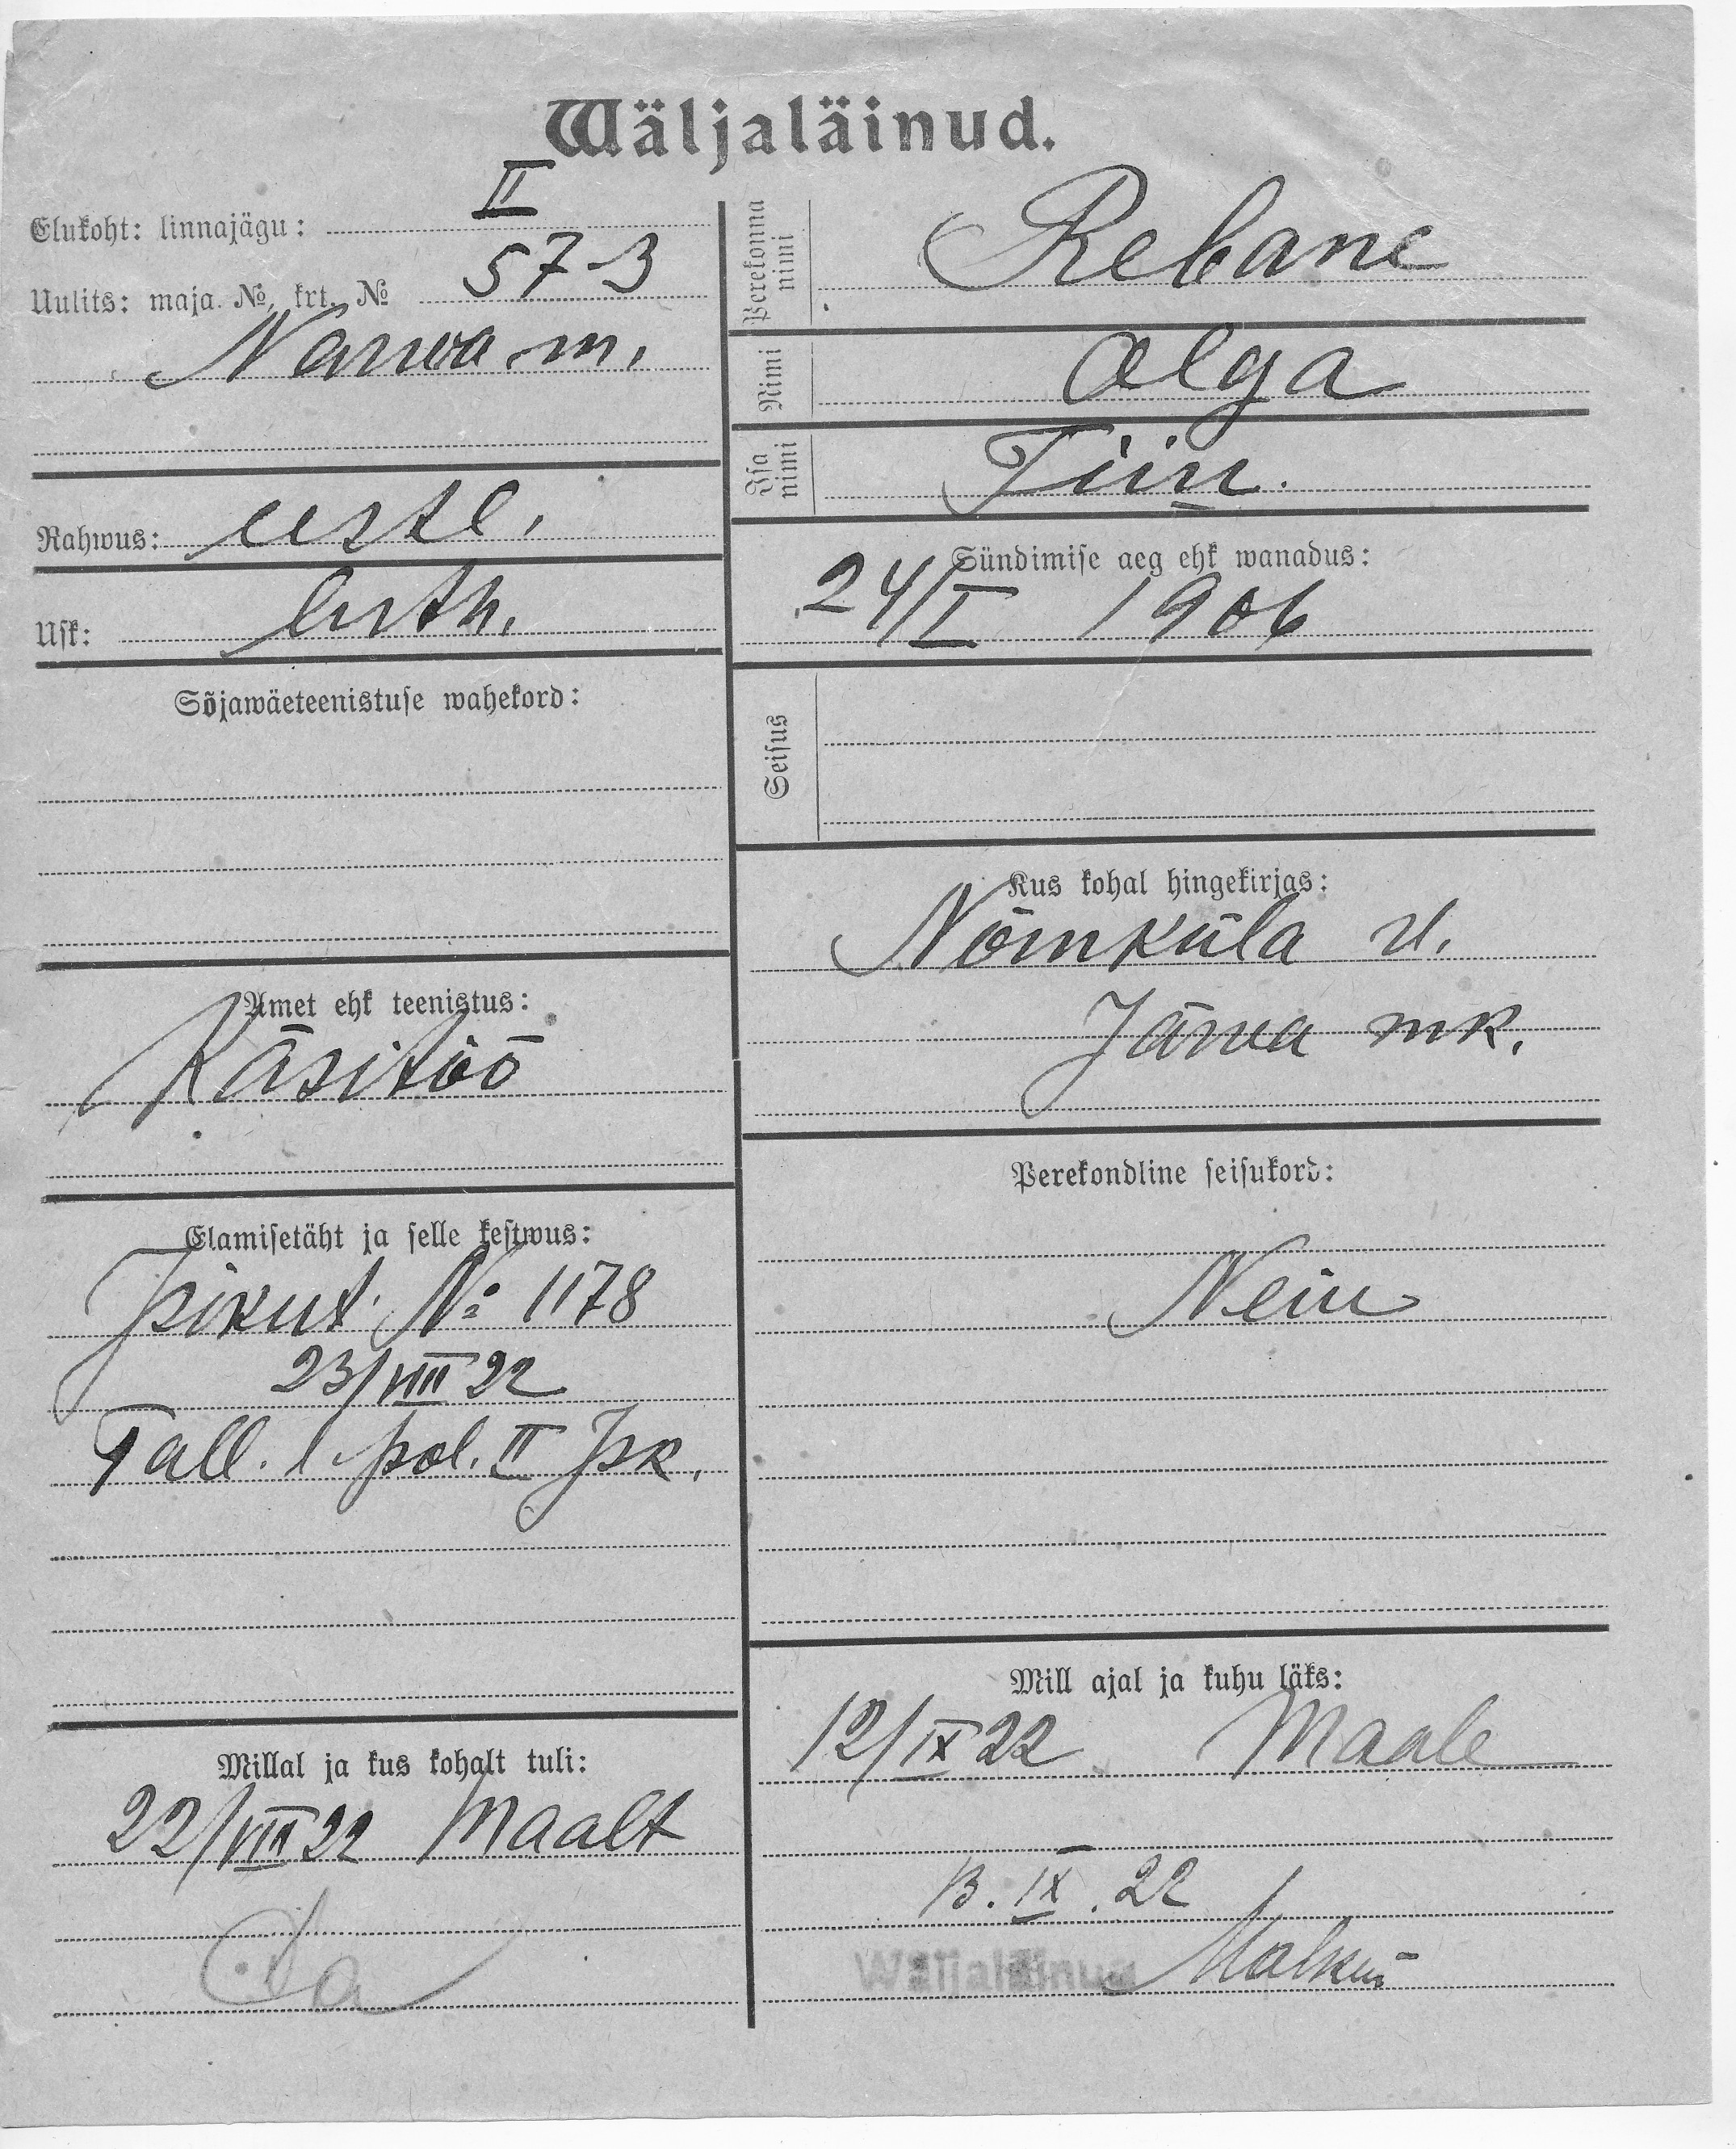 Wäljaläinud.
Elukoht: linnajägu: II
Uulits: maja. № krt. № 57-3
Narwa m.
Rahwus: eestl.
Usk: luth.
Sõjawäeteenistuse wahekord:
Amet ehk teenistus:
Käsitöö
Elamisetäht ja selle kestwus:
Isikut. № 1178
23/VIII 22
Tall. l pol. II Jsk.
Millal ja kus kohalt tuli:
22/VIII 22 Maalt
Perekonna nimi Rebane
Nimi Olga
Isa nimi Tiiu.
Sündimise aeg ehk wanadus:
24/I 1906
Seisus
Kus kohal hingekirjas:
Nõmküla v.
Järwa mk.
Perekondline seisukord:
Neiu
Mill ajal ja kuhu läks:
12/IX 22 Maale
13. IX. 22
Wäljaläinud